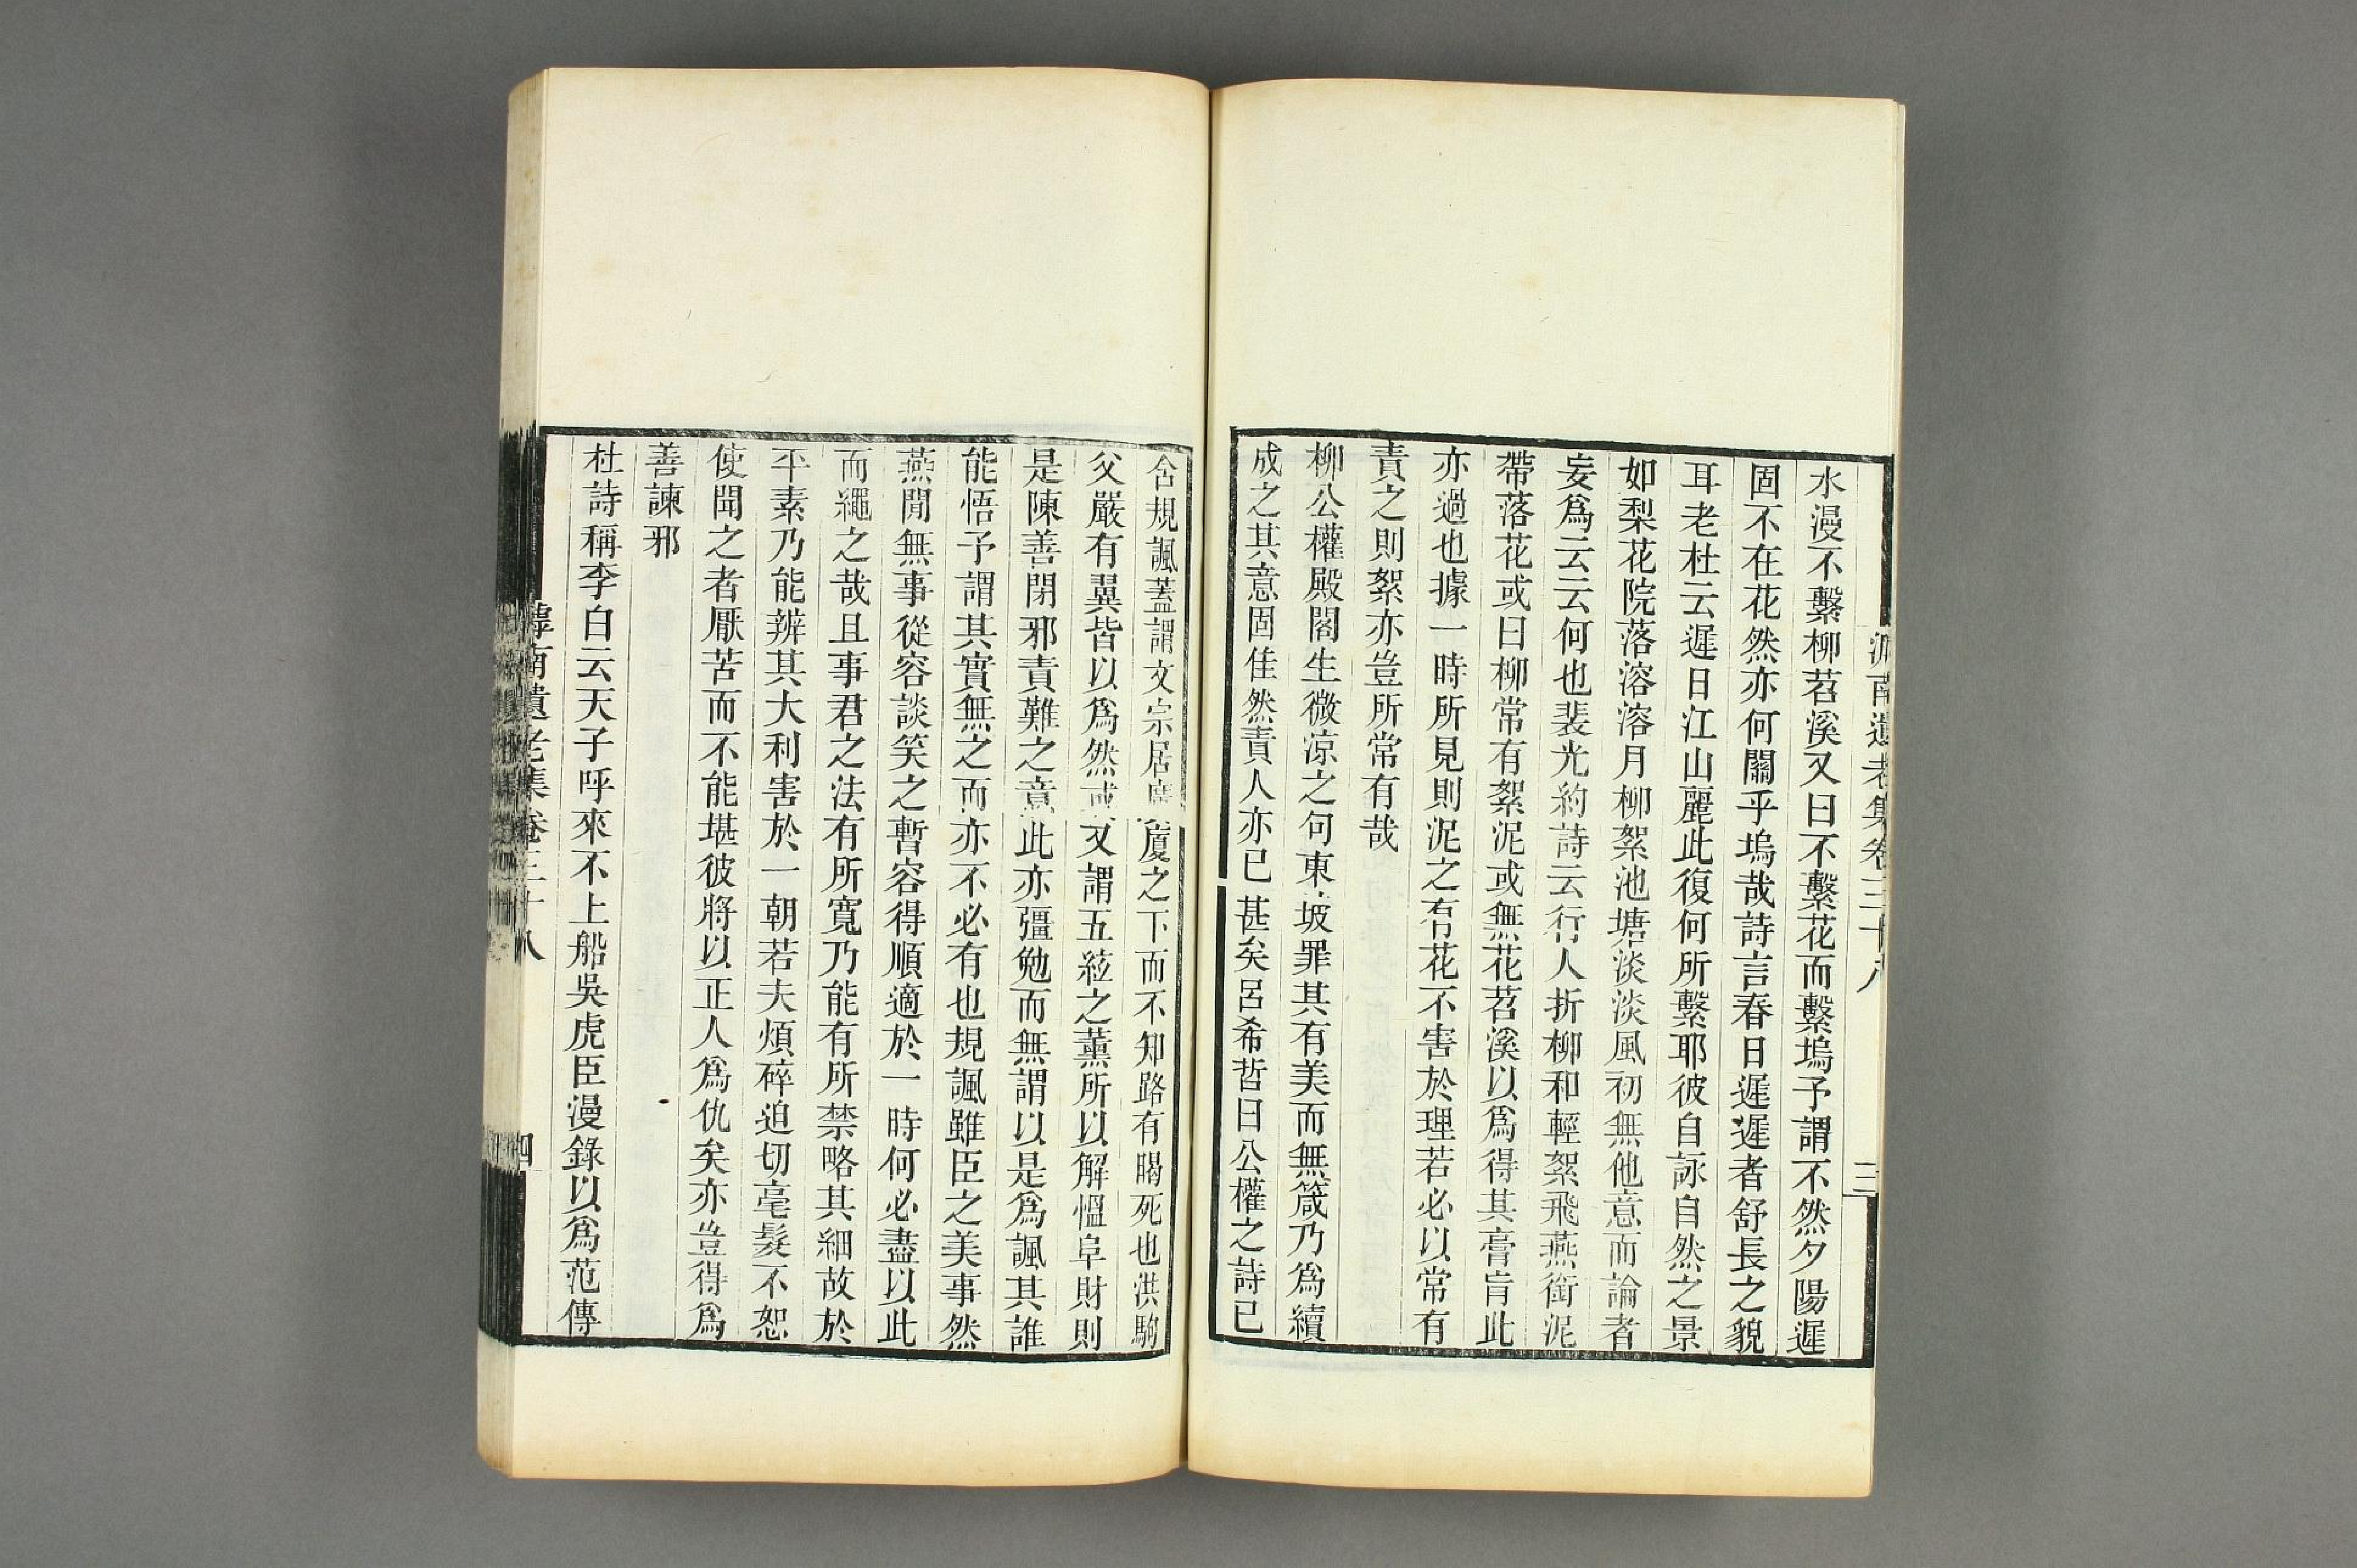 滹南遺老集卷三十八
三
水漫不繫柳苕溪又曰不繫花而繫塢予謂不然夕陽遲
固不在花然亦何關乎塢哉詩言春日遲遲者舒長之貌
耳老杜云遲日江山麗此復何所繫耶彼自詠自然之景
如梨花院落溶溶月柳絮池塘淡淡風初無他意而論者
妄爲云云何也裴光約詩云行人折柳和輕絮飛燕銜泥
帶落花或曰柳常有絮泥或無花苕溪以爲得其膏肓此
亦過也據一時所見則泥之有花不害於理若必以常有
責之則絮亦豈所常有哉
柳公權殿閣生微涼之句東坡罪其有美而無箴乃爲續
成之其意固佳然責人亦已甚矣呂希哲曰公權之詩已
含規諷蓋謂文宗居廣厦之下而不知路有暍死也洪駒
父嚴有翼皆以爲然或又謂五絃之薰所以解慍阜財則
是陳善閉邪責難之意此亦彊勉而無謂以是爲諷其誰
能悟予謂其實無之而亦不必有也規諷雖臣之美事然
燕閒無事從容談笑之暫容得順適於一時何必盡以此
而繩之哉且事君之法有所寬乃能有所禁略其細故於
平素乃能辨其大利害於一朝若夫煩碎迫切毫髮不恕
使聞之者厭苦而不能堪彼將以正人爲仇矣亦豈得爲
善諫邪
杜詩稱李白云天子呼來不上船吳虎臣漫錄以爲范傳
滹南遺老集卷三十八
四